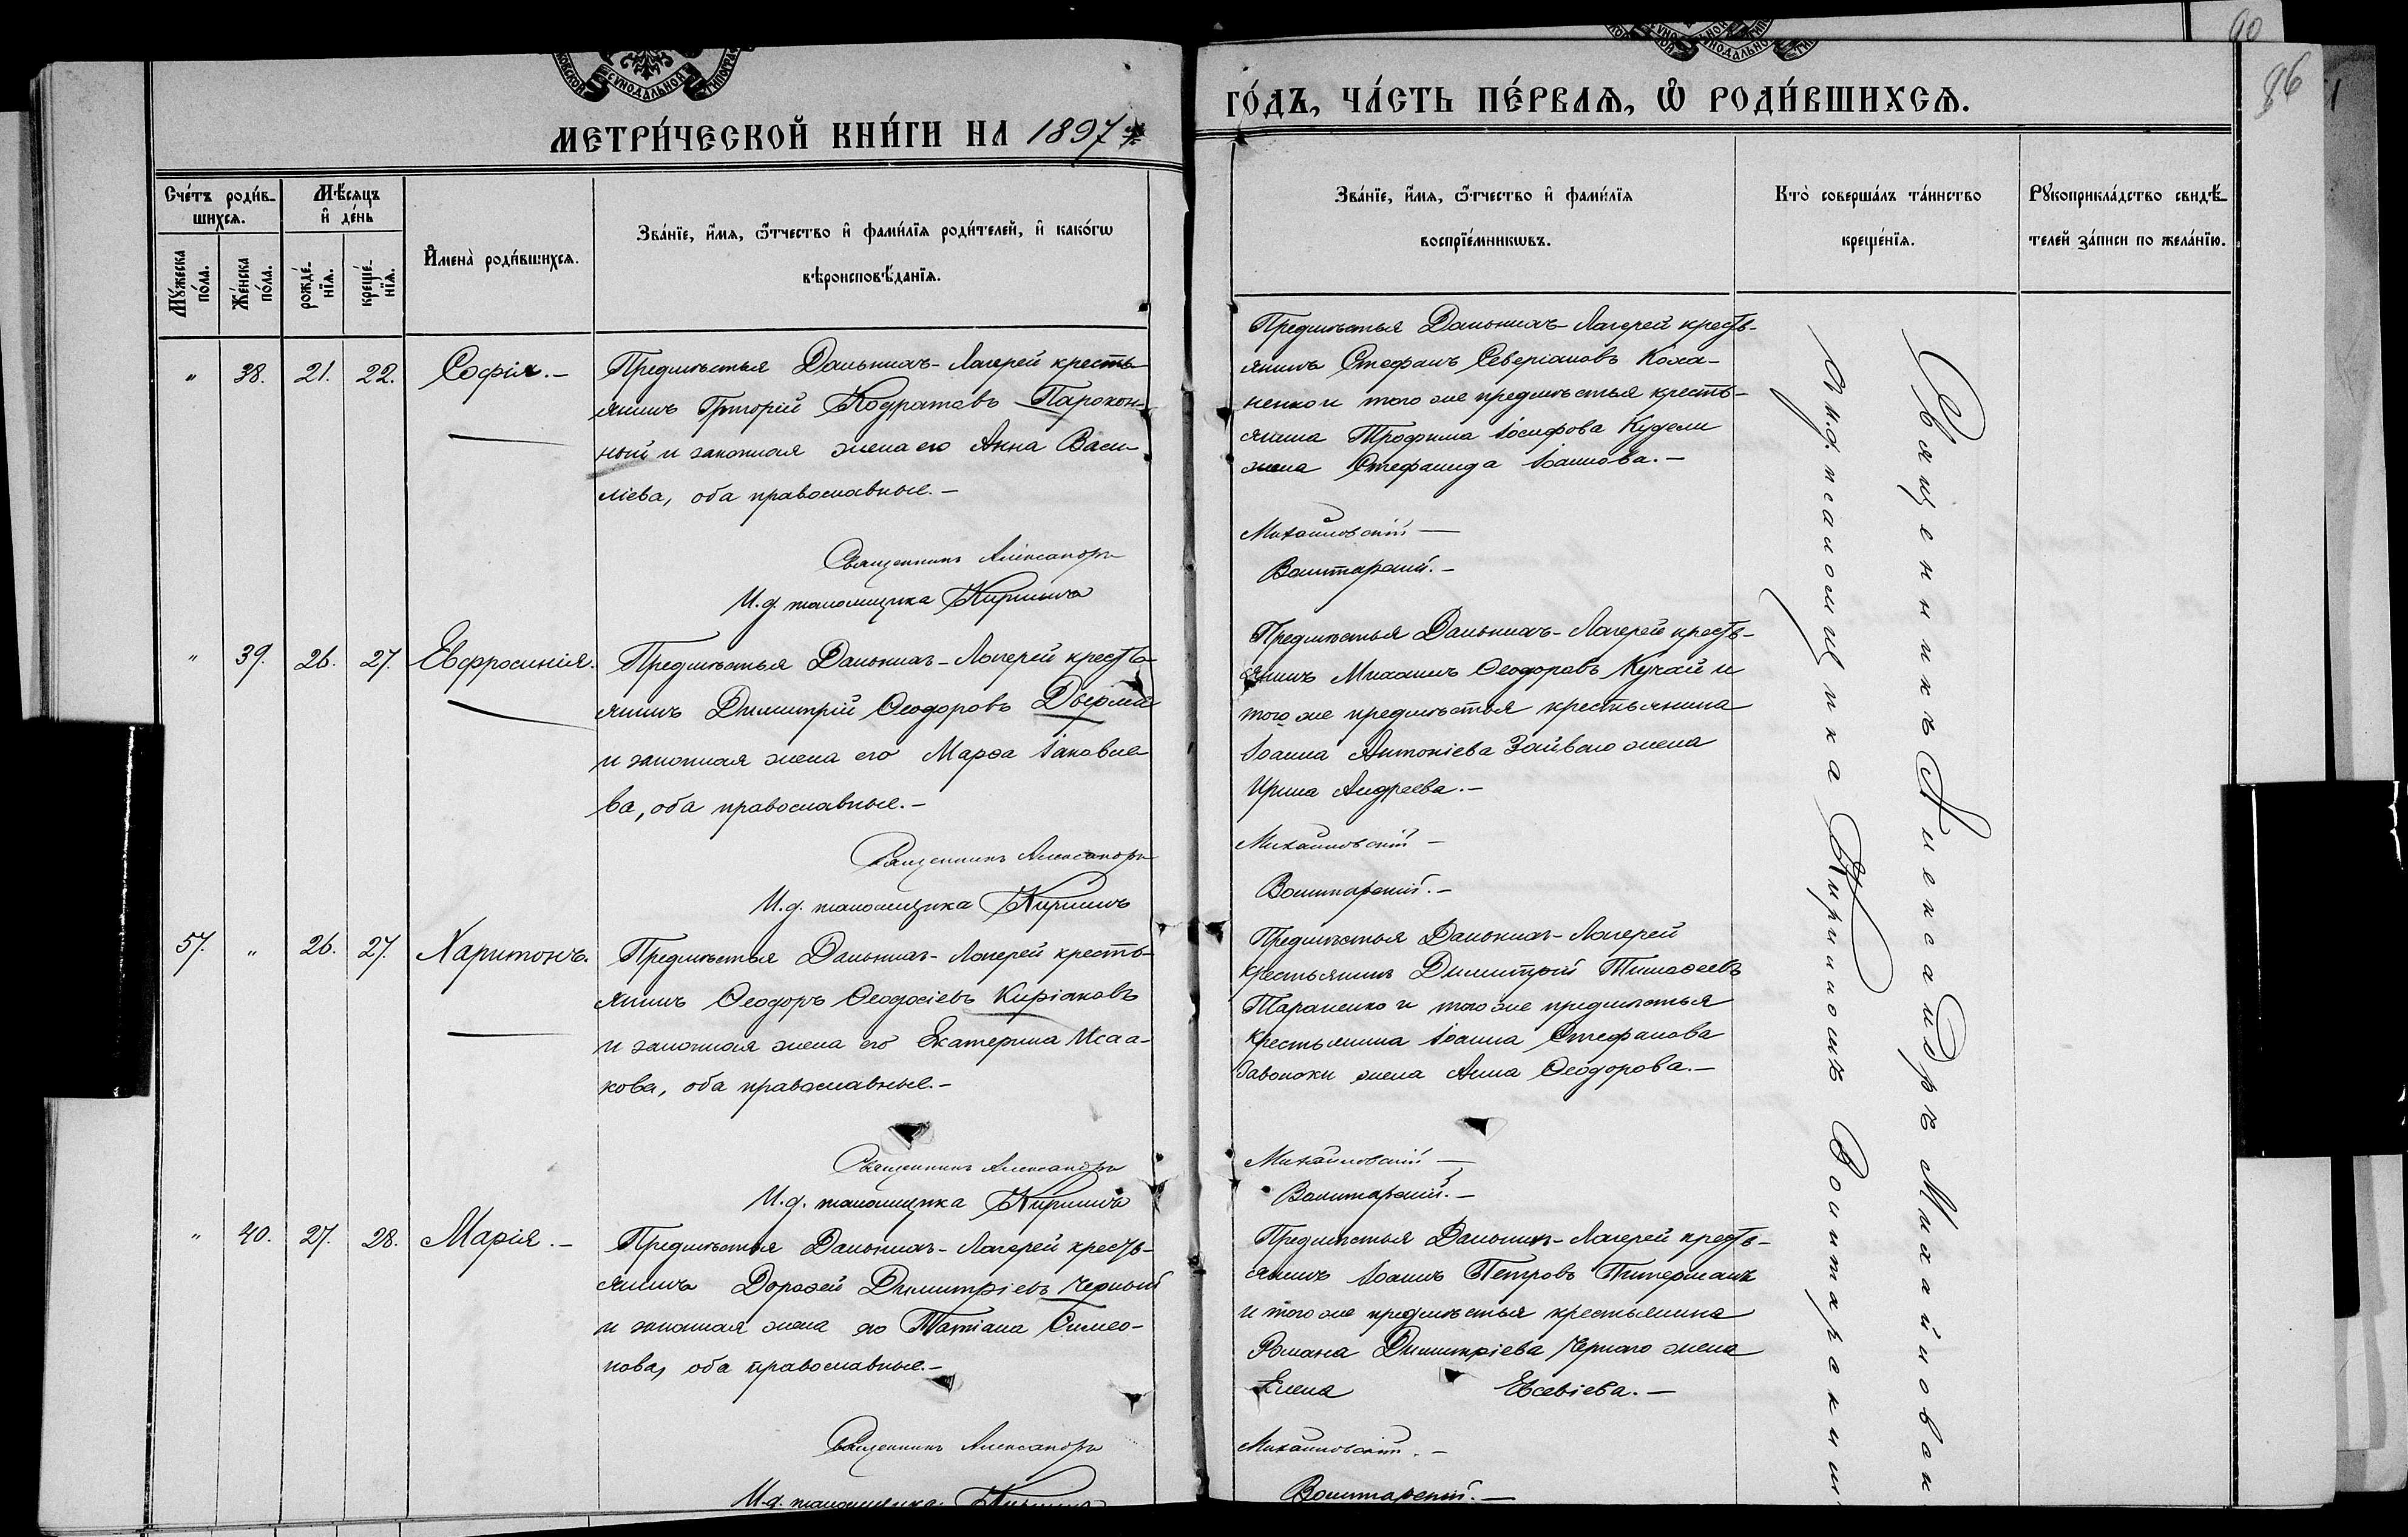 90
86
МЕТРИ́ЧЕСКОЙ КНИ́ГИ НА 1897
ГО́ДЪ, ЧА́СТЬ ПЕ́РВАѦ, Ѡ҆ РОДИ́ВШИХСѦ.
Сче́тъ роди́в-
шихсѧ.
Мѣ́сѧцъ
и҆ де́нь
Му́жеска
по́ла.
Же́нска
по́ла.
рожде́-
нїѧ.
креще́-
нїѧ.
И҆мена̀ роди́вшихсѧ.
Зва́нїе, и҆́мѧ, ѻ҆́тчество и҆ фами́лїѧ роди́телей, и҆ како́гѡ
вѣроисповѣ́данїѧ.
Зва́нїе, и҆́мѧ, ѻ҆́тчество и҆ фами́лїѧ
воспрїе́мникѡвъ.
Кто̀ соверша́лъ та́инство
креще́нїѧ.
Рꙋкоприкла́дство свидѣ́-
телей за́писи по жела́нїю.
" 38. 21. 22. Софія.-
Предмѣстья Дальникъ-Лагерей кресть-
янинъ Григорій Кодратовъ Парокон-
ный и законная жена его Анна Васи-
ліева, оба православные.-
Священникъ Александръ
И.д. псаломщика Кириллъ
Предмѣстья Дальникъ-Лагерей кресть-
янинъ Стефанъ Северіановъ Коха-
ненко и того же предмѣстья кресть-
янина Трофима Іосифова Кудели
жена Стефанида Іоаннова.-
Михайловскій -
Волитарскій.-
" 39. 26. 27. Евфросинія.
Предмѣстья Дальникъ-Лагерей кресть-
янинъ Димитрій Ѳеодоровъ
и законная жена его Марѳа Іаковле-
ва, оба православные.-
Священникъ Александръ
И.д. псаломщика Кириллъ
Предмѣстья Дальникъ-Лагерей кресть-
янинъ Михаилъ Ѳеодоровъ Кучай и
того же предмѣстья крестьянина
Іоанна Антоніева жена
Ирина Андреева.-
Михайловскій -
Волитарскій.-
57. " 26. 27. Харитонъ.
Предмѣстья Дальникъ-Лагерей кресть-
янинъ Ѳеодоръ Ѳеодосіевъ Киріаковъ
и законная жена его Екатерина Исаа-
кова, оба православные.-
Священникъ Александръ
И.д. псаломщика Кириллъ
Предмѣстья Дальникъ-Лагерей
крестьянинъ Димитрій Тимоѳеевъ
Тараненко и того же предмѣстья
крестьянина Іоанна Стефанова
жена Анна Ѳеодорова.-
Михайловскій -
Волитарскій.-
" 40. 27. 28. Марія.-
Предмѣстья Дальникъ-Лагерей кресть-
янинъ Дороѳей Димитріевъ Черный
и законная жена его Татіана Симео-
нова, оба православные.-
Священникъ Александръ
И.д. псаломщика Кириллъ
Предмѣстья Дальникъ-Лагерей кресть-
янинъ Іоаннъ Петровъ
и того же предмѣстья крестьянина
Романа Димитріева Чернаго жена
Елена Евсевіева.-
Михайловскій.-
Волитарскій.-
Священникъ Александръ Михайловск
И.д. псаломщика Кириллъ Волитарскій